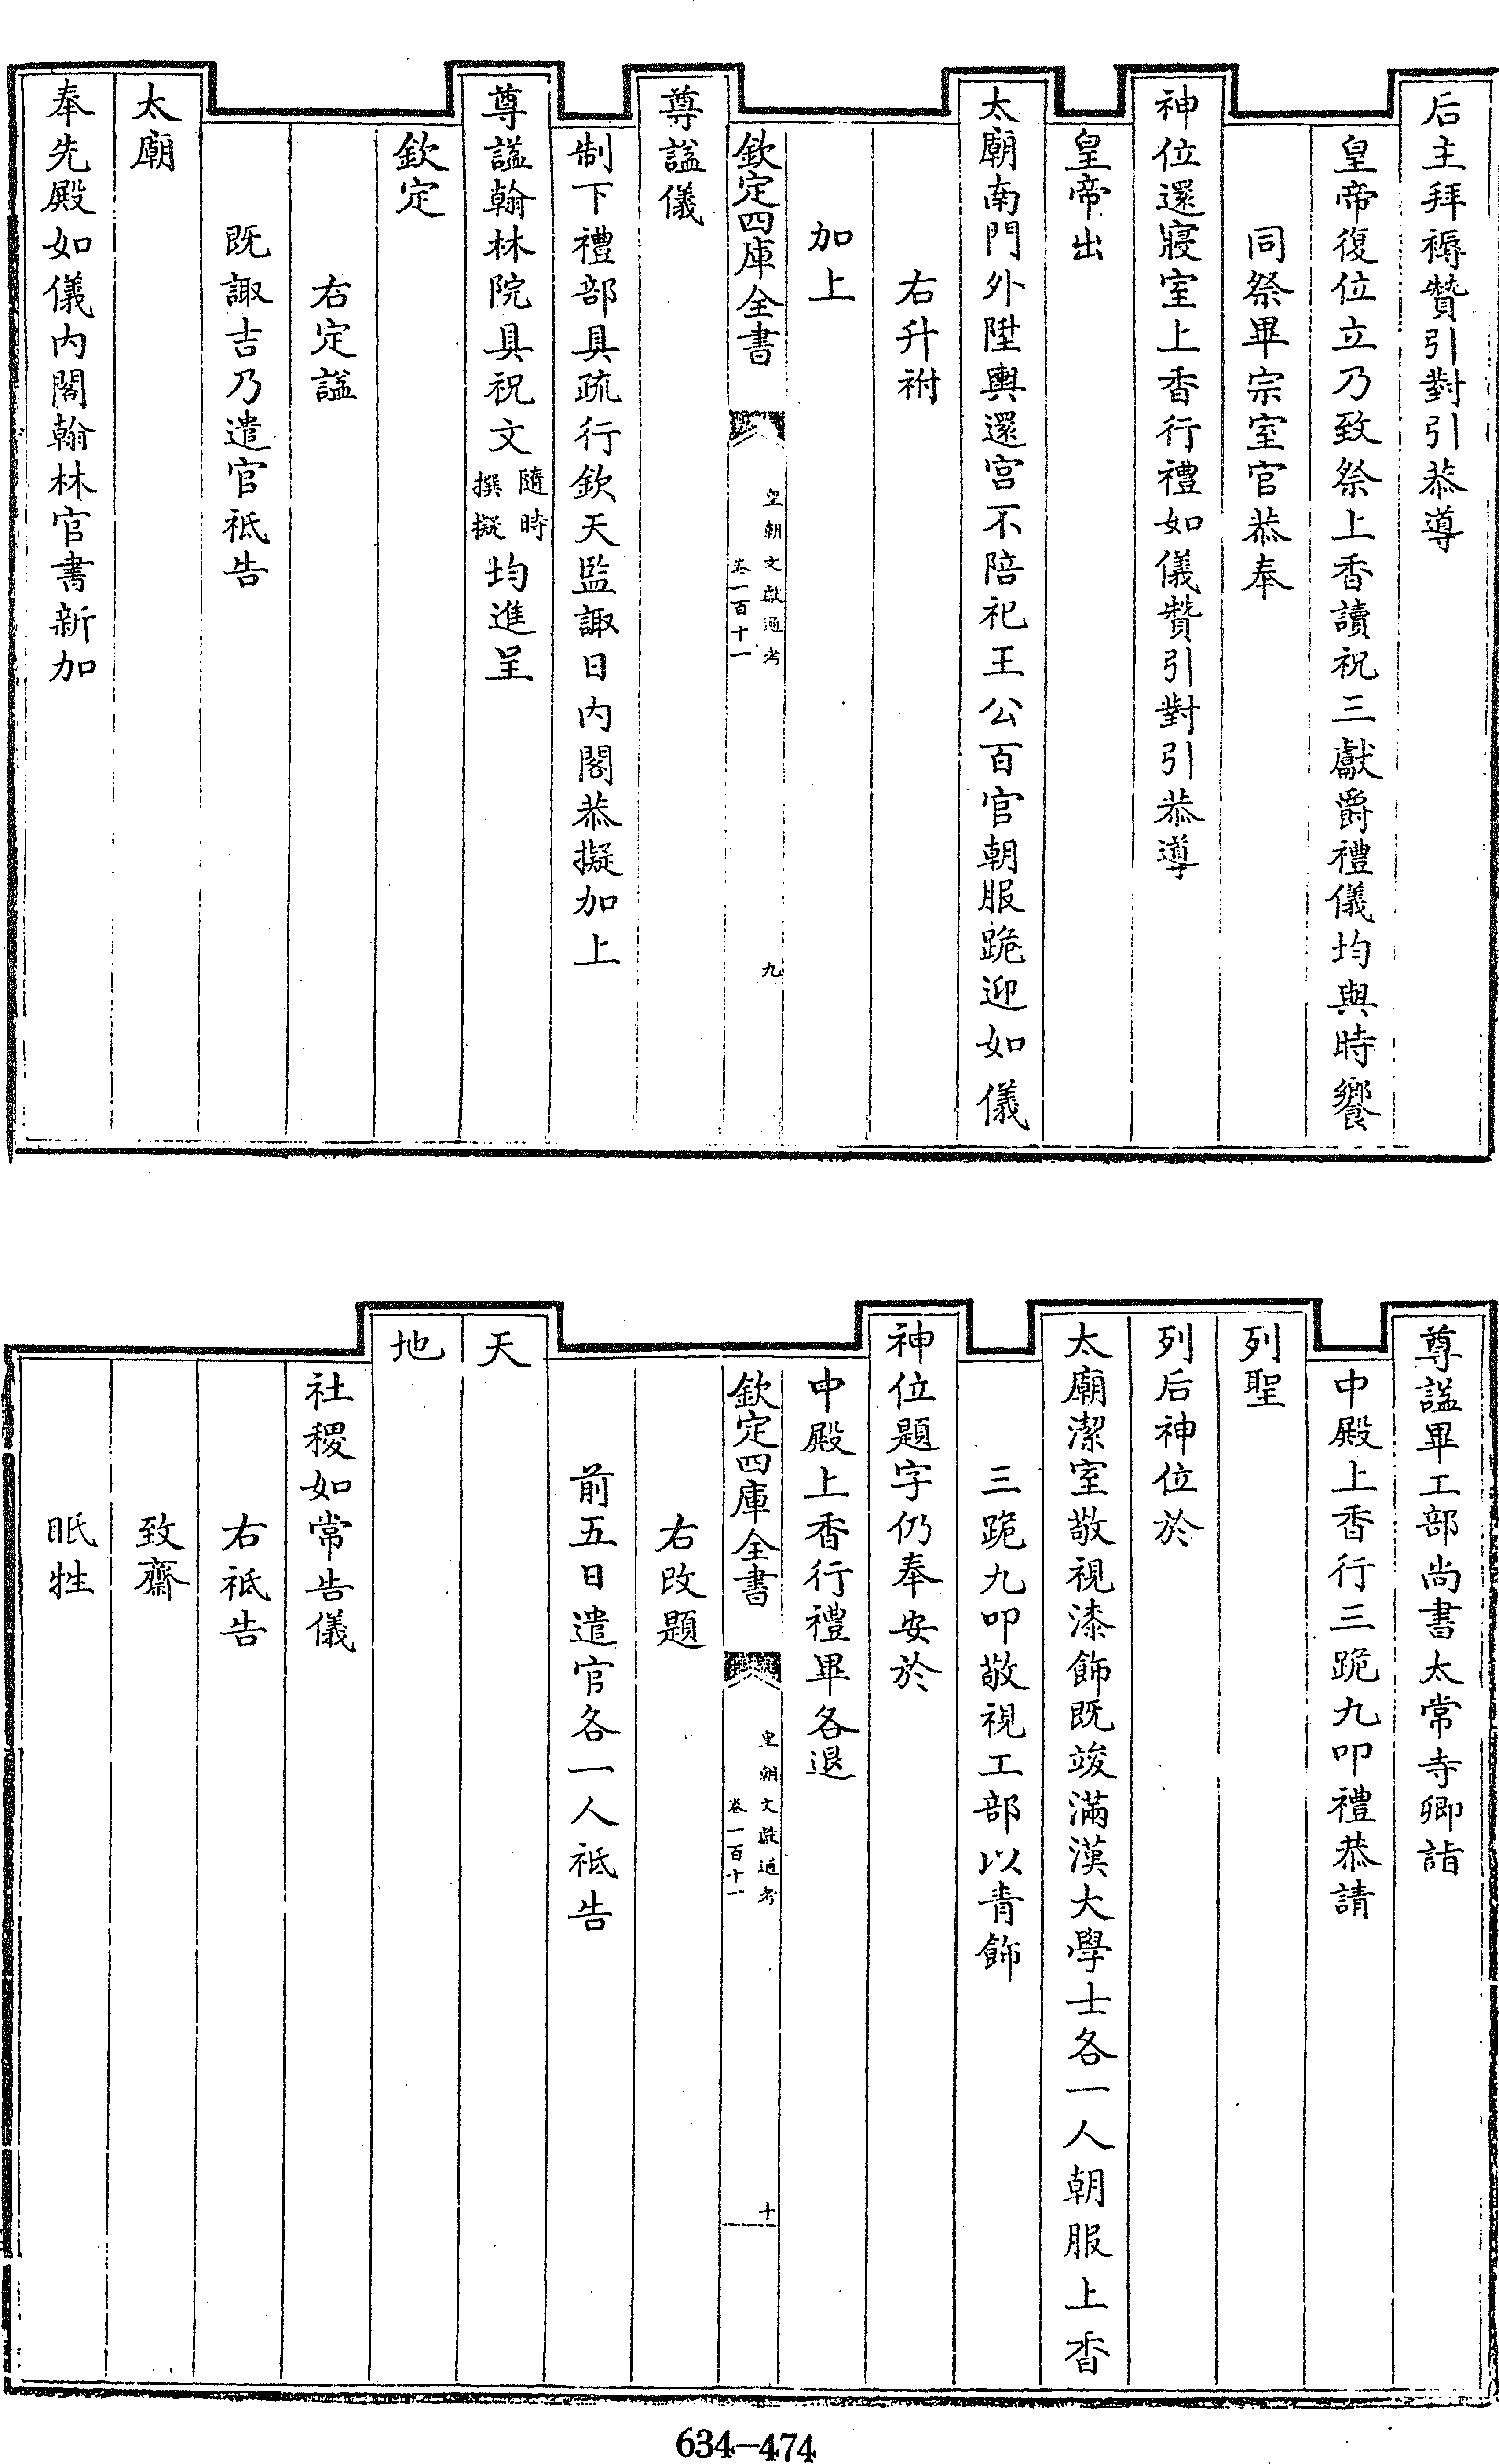 后主拜褥贊引對引恭導
皇帝復位立乃致祭上香讀祝三獻爵禮儀均與時饗
同祭畢宗室官恭奉
神位還寢室上香行禮如儀贊引對引恭導
皇帝出
太廟南門外陞輿還宫不陪祀王公百官朝服跪迎如儀
右升祔
加上
欽定四庫全書
皇朝文獻通考
卷一百十一
九
尊諡儀
制下禮部具疏行欽天監諏日内閣恭擬加上
尊諡翰林院具祝文隨時撰擬均進呈
欽定
右定諡
既諏吉乃遣官祗告
太廟
奉先殿如儀内閣翰林官書新加
尊諡畢工部尚書太常寺卿詣
中殿上香行三跪九叩禮恭請
列聖
列后神位於
太廟潔室敬視漆飾既竣滿漢大學士各一人朝服上香
三跪九叩敬視工部以青飾
神位題字仍奉安於
中殿上香行禮畢各退
欽定四庫全書
皇朝文獻通考
卷一百十一
十
右改題
前五日遣官各一人祗告
天
地
社稷如常告儀
右祗告
致齋
眂牲
634-474